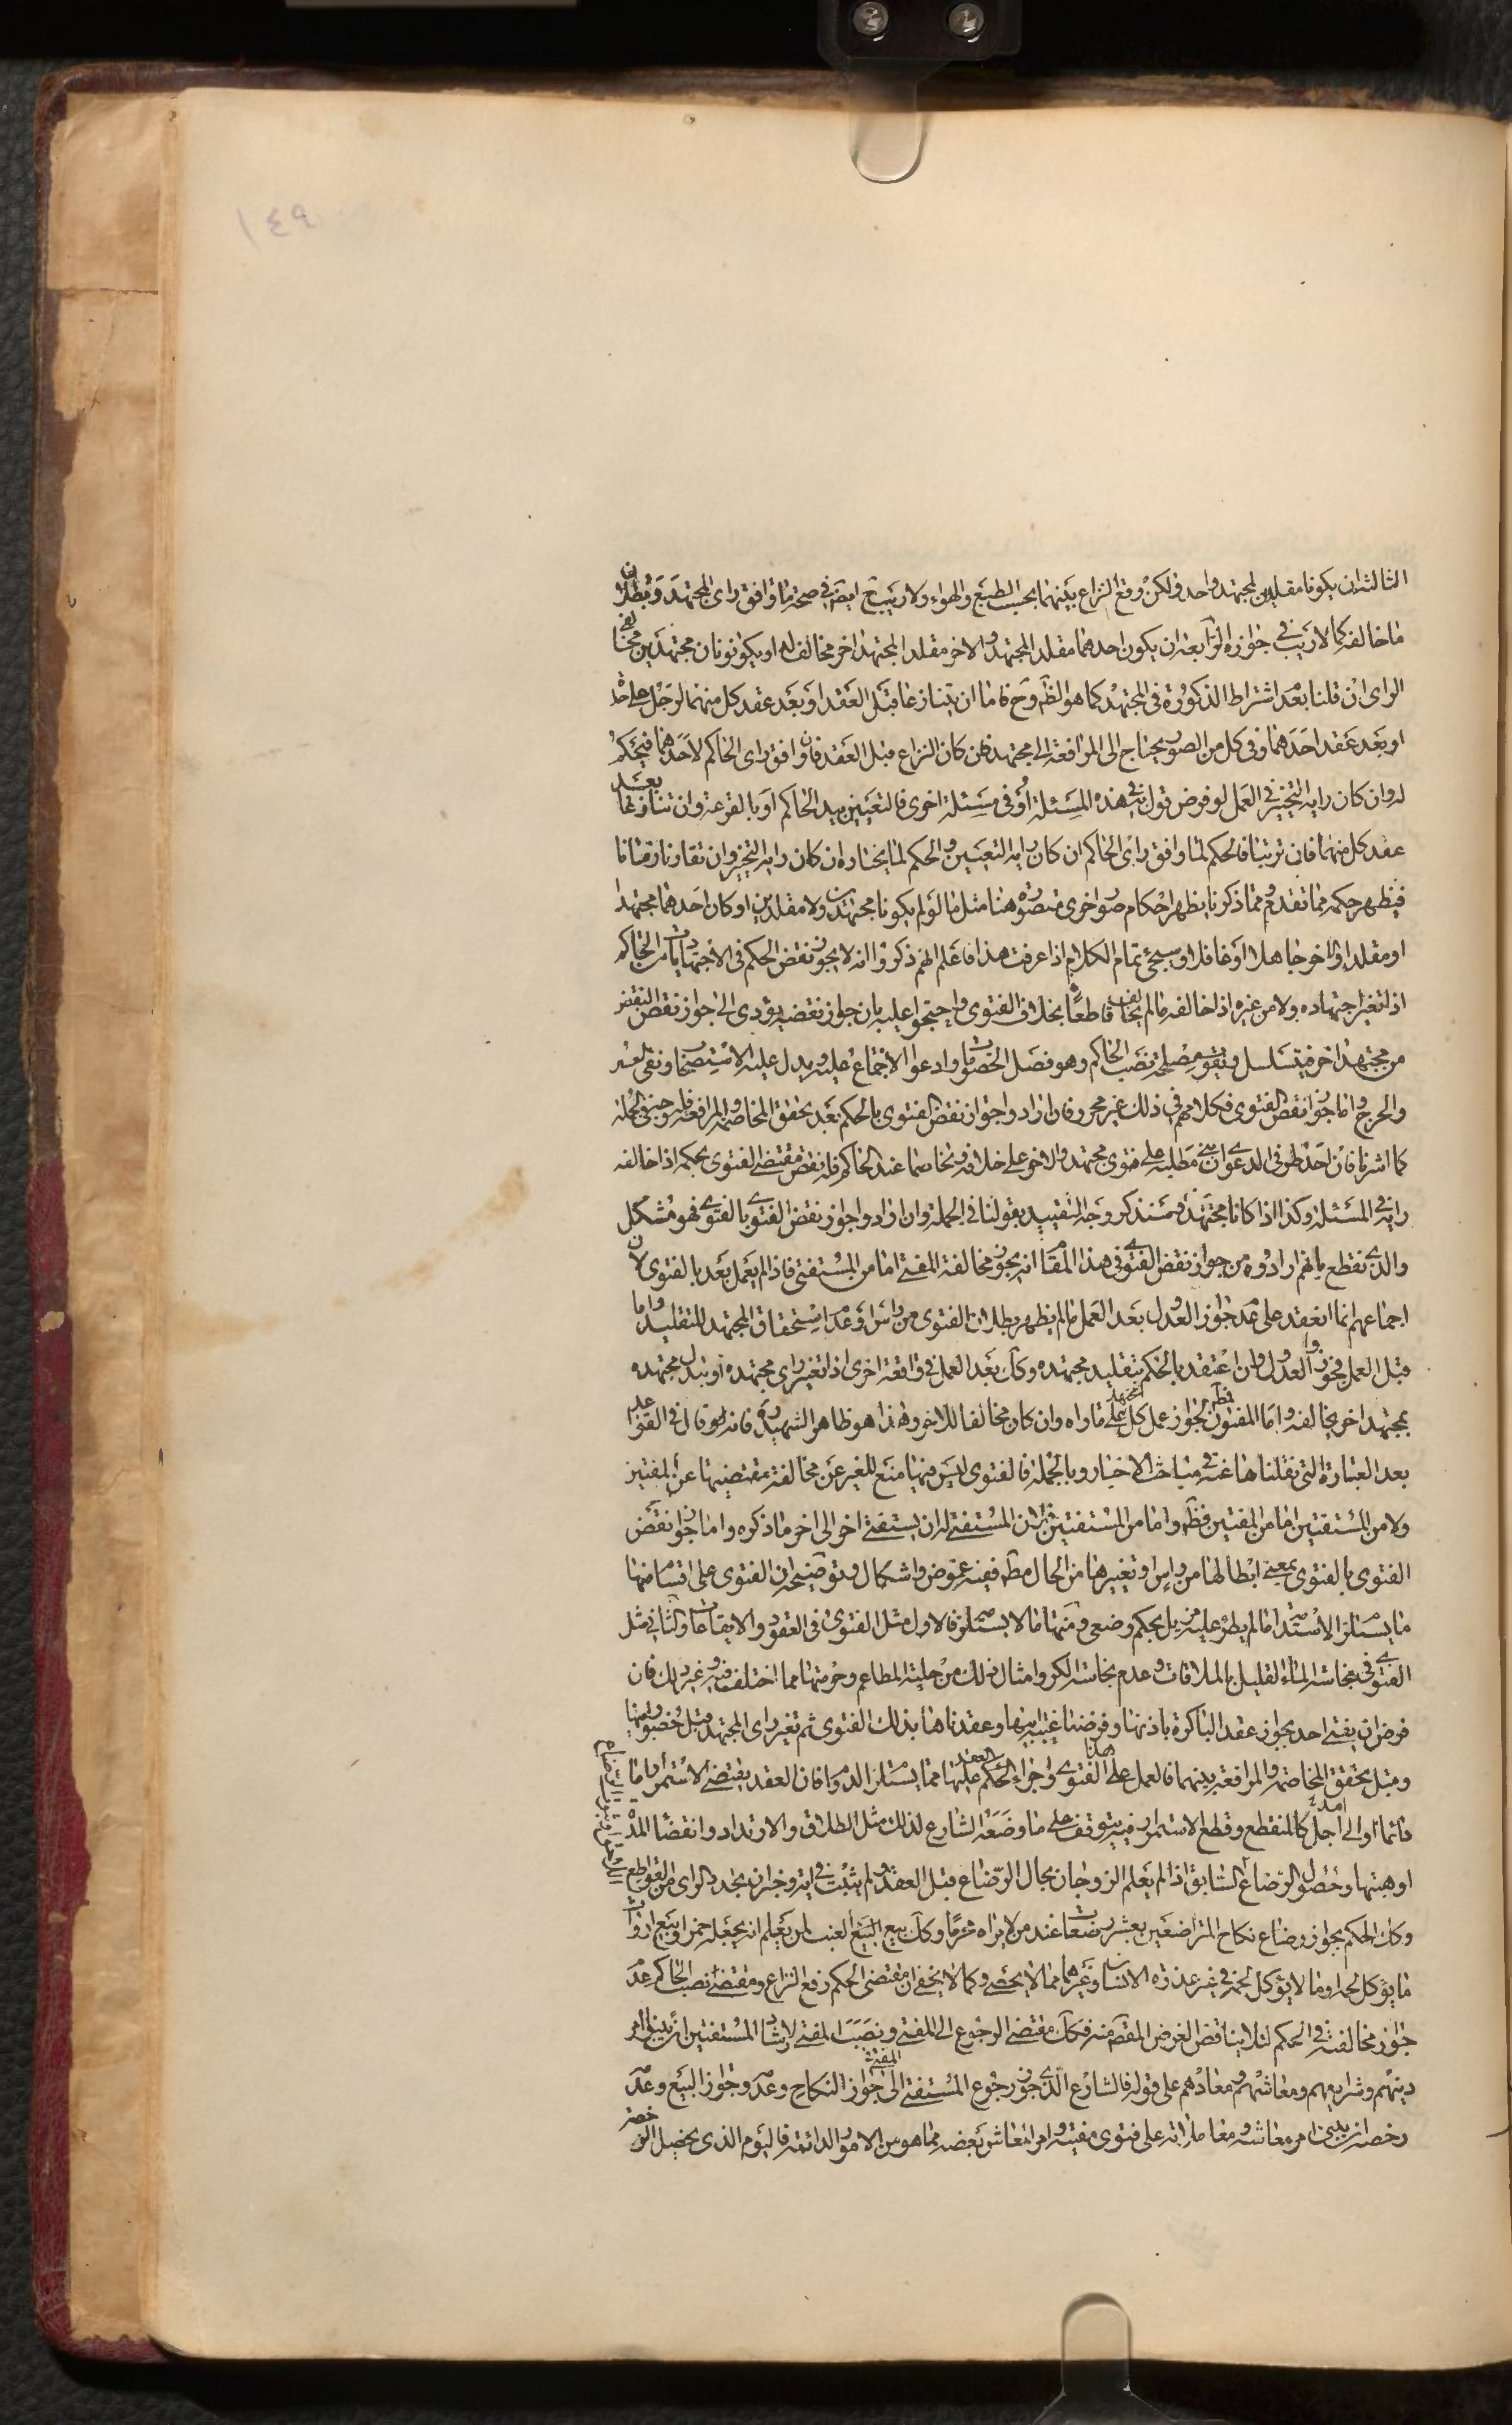 ١٤٩
الثالثة ان يكونا مقلدين لمجتهد واحد ولكن وقع النزاع بينهما بحسب الطبع والهواء ولا ريب ح ايضا في صحة ما وافق راى المجتهد وبطلان
ما خالفه كما لا ريب في جوازه الرابعة ان يكون احدهما مقلدا لمجتهد والاخر مقلدا لمجتهد اخر مخالف له او يكونونان مجتهدين مخالفى
الراى ان قلنا بعد اشتراط الذكورة فى المجتهد كما هو الظ وح فاما ان يتنازعا قبل العقد او بعد عقد كل منهما لرجل على حدة
او بعد عقد احدهما وفى كل من الصور يحتاج الى المرافعة الى مجتهد فان كان النزاع قبل العقد فان وافق راى الحاكم لاحدهما فيحكم
له وان كان رايه التخيير فى العمل لو فرض قول به في هذه المسئلة او فى مسئلة اخرى فالتعيين بيد الحاكم او بالقرعة وان تنازعا بعد
عقد كل منهما فان ترتبا فالحكم لما وافق راى الحاكم ان كان رايه التعيين والحكم لما يختاره ان كان رايه التخيير وان تقارنا زمانا
فيظهر حكمه مما تقدم ومما ذكرنا يظهر احكام صور اخرى متصورة هنا مثل ما لو لم يكونا مجتهدين ولا مقلدين او كان احدهما مجتهدا
او مقلدا والاخر جاهلا او غافلا وسيجئ تمام الكلام اذا عرفت هذا فاعلم انهم ذكروا انه لا يجوز نقض الحكم فى الاجتهاديات من الحاكم
اذا تغير اجتهاده ولا من غيره اذا خالفه ما لم يخالف قاطعا بخلاف الفتوى واحتجوا عليه بان جواز نقضه يؤدى الى جواز نقض النقض
من مجتهد اخر فيتسلسل وتفوت مصلحة نصب الحاكم وهو فصل الخصومات وادعوا الاجماع عليه ويدل عليه الاستصحاب ونفى العسر
والحرج واما جواز نقض الفتوى فكلامهم في ذلك غير محرر فان ارادوا جواز نقض الفتوى بالحكم بعد تحقق المخاصمة والمرافعة فله وجه في الجملة
كما اشرنا فان احد طرفى الدعوى ان بنى مطلبه على فتوى مجتهد والاخر على خلافه وتخاصما عند الحاكم فله نقض مقتضى الفتوى بحكمه اذا خالفه
رايه فى المسئلة وكذا اذا كانا مجتهدين وسنذكر وجه التقييد بقولنا فى الجملة وان ارادوا جواز نقض الفتوى بالفتوى فهو مشكل
والذى نقطع بانهم ارادوه من جواز نقض الفتوى فى هذا المقام انه يجوز مخالفة المفتى اما من المستفتى فاذا لم يعمل بعد بالفتوى لان
اجماعهم انما انعقد على عدم جواز العدول بعد العمل ما لم يظهر بطلان الفتوى من راس او عدم استحقاق المجتهد للتقليد واما
قبل العمل فيجوز العدول وان اعتقد بالحكم بتقليد مجتهده وكك بعد العمل فى واقعة اخرى اذا تغير راى مجتهده او تبدل مجتهده
بمجتهد اخر يخالفه واما المفتون فظ لجواز عمل كل مجتهد على ما راه وان كان مخالفا للاخر وهذا هو ظاهر الشهيد ره فانه قال فى القواعد
بعد العبارة التى نقلناها عنه فى مباحث الاخبار وبالجملة فالفتوى ليس فيها منع للغير عن مخالفة مقتضيها عن المفتيين
ولا من المستفتين اما من المفتين فظ واما من المستفتين فلان المستفتى له ان يستفتى اخر الى اخر ما ذكره واما جواز نقض
الفتوى بالفتوى بمعنى ابطالها من راس او تغييرها من الحال مط ففيه غموض واشكال وتوضيحه ان الفتوى على اقسام منها
ما يستلزم الاستدامة ما لم يطرء عليه مزيل بحكم وضعى ومنها ما لا يستلزمه فالاول مثل الفتوى فى العقود والايقاعات والثانى مثل
الفتوى فى نجاسة الماء القليل بالملاقات وعدم نجاسة الكر وامثال ذلك من حلية المطاعم وحرمتها مما اختلف فيه وغير ذلك فان
فرض ان يفتى احد بجواز عقد الباكرة باذنها وفرضنا غيبة ابيها وعقدناها بذلك الفتوى ثم تغير راى المجتهد قبل خصومتهما
وقبل تحقق المخاصمة والمرافعة بينهما فالعمل على هذا الفتوى واجراء الحكم العقد عليهما مما يستلزم الدوام فان العقد يقتضى الاستمرار اما
دائما او الى اجل امده كالمنقطع وقطع الاستمرار فيه يتوقف على ما وضعه الشارع لذلك مثل الطلاق والارتداد وانقضاء المدة
او هبتها وحصول الرضاع السابق اذا لم يعلم الزوجان بحال الرضاع قبل العقد ولم يثبت فى اية وخبر ان تجدد الراى من القواطع
وكك الحكم بجواز رضاع نكاح المتراضعين بعشر رضعات عند من لا يراه محرما وكك بيع البيع العنب لمن يعلم انه يجعله خمرا وبيع ارواث
ما يؤكل لحمه وما لا يؤكل لحمه فى غير عذرة الانسان وغيرهما مما لا يحصى وكما لا يخفى ان مقتضى الحكم رفع النزاع ومقتضى نصب الحاكم عدم
جواز مخالفته فى الحكم لئلا يناقض الغرض المقص منه فكك مقتضى الرجوع الى المفتى ونصب المفتى لارشاد المستفتين ان يبنوا امر
دينهم وشرايعهم ومعاشهم ومعادهم على قوله فالشارع الذى جوز رجوع المستفتى الى المفتى جواز النكاح وعدمه وجواز البيع وعدمه
رخصه ان يبنى امر معاشه ومعاملاته على فتوى مفتيه وامر المعاش بعضه مما هو من الامور الدائمة فاليوم الذى يحصل الرخصة